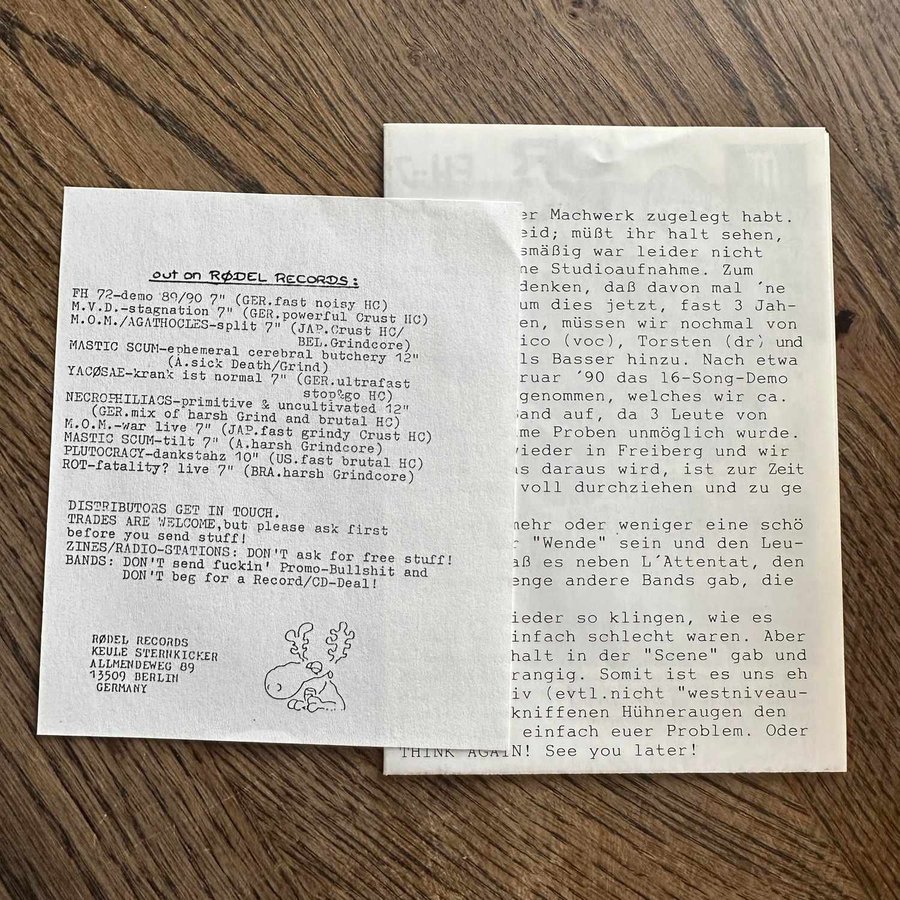 out on RØDEL RECORDS:
FH 72-demo '89/90 7" (GER.fast noisy HC)
M.V.D.-stagnation 7" (GER.powerful Crust HC)
M.O.M./AGATHOCLES-split 7" (JAP.Crust HC/
BEL.Grindcore)
MASTIC SCUM-ephemeral cerebral butchery 12"
(A.sick Death/Grind)
YACØSAE-krank ist normal 7" (GER.ultrafast
stop&go HC)
NECROPHILIACS-primitive & uncultivated 12"
(GER.mix of harsh Grind and brutal HC)
M.O.M.-war live 7" (JAP.fast grindy Crust HC)
MASTIC SCUM-tilt 7" (A.harsh Grindcore)
PLUTOCRACY-dankstahz 10" (US.fast brutal HC)
ROT-fatality? live 7" (BRA.harsh Grindcore)
DISTRIBUTORS GET IN TOUCH.
TRADES ARE WELCOME,but please ask first
before you send stuff!
ZINES/RADIO-STATIONS: DON'T ask for free stuff!
BANDS: DON'T send fuckin' Promo-Bullshit and
DON'T beg for a Record/CD-Deal!
RØDEL RECORDS
KEULE STERNKICKER
ALLMENDEWEG 89
13509 BERLIN
GERMANY
er Machwerk zugelegt habt.
eid; müßt ihr halt sehen,
smäßig war leider nicht
ne Studioaufnahme. Zum
denken, daß davon mal ´ne
um dies jetzt, fast 3 Jah-
en, müssen wir nochmal von
ico (voc), Torsten (dr) und
ls Basser hinzu. Nach etwa
ruar ´90 das 16-Song-Demo
genommen, welches wir ca.
and auf, da 3 Leute von
me Proben unmöglich wurde.
wieder in Freiberg und wir
as daraus wird, ist zur Zeit
voll durchziehen und zu ge
mehr oder weniger eine schö
r "Wende" sein und den Leu-
aß es neben L´Attentat, den
enge andere Bands gab, die
ieder so klingen, wie es
infach schlecht waren. Aber
halt in der "Scene" gab und
rangig. Somit ist es uns eh
iv (evtl.nicht "westniveau-
kniffenen Hühneraugen den
einfach euer Problem. Oder
THINK AGAIN! See you later!